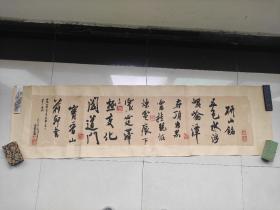 研山銘
五色水浮
崑崙潭
在頂出黑
雲挂龍怪
爍電痕下
震霆澤
厚
極變化
闔道門
寶晉山
前軒書